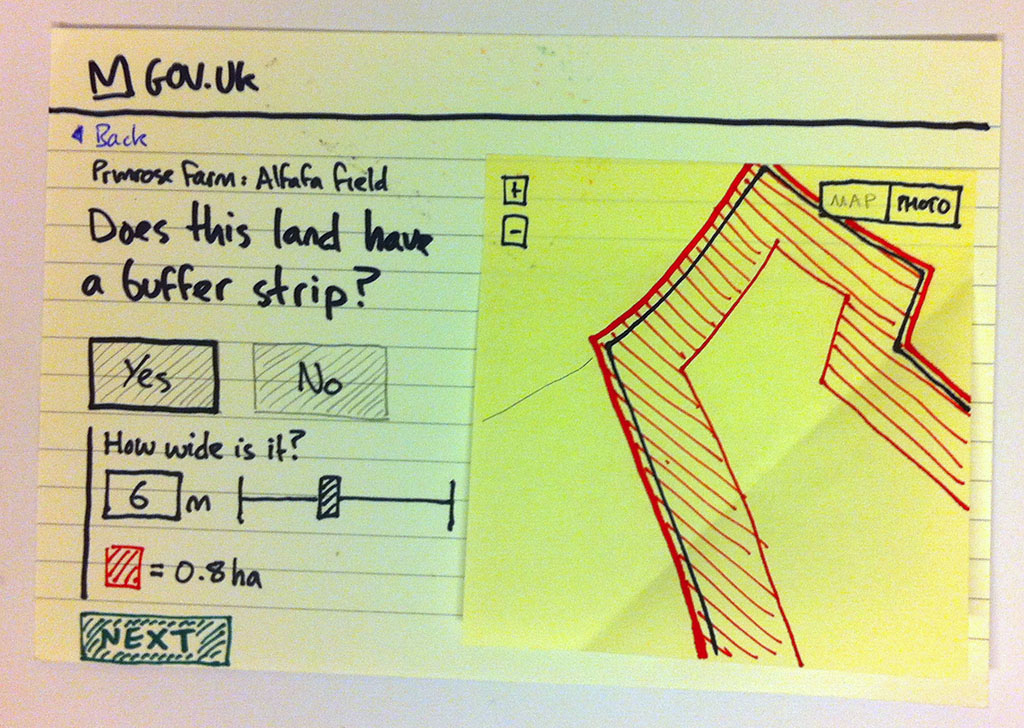 GOV.UK
Back
Primrose Farm: Alfafa Field
Does this land have
a buffer strip?
Yes No
How wide is it?
6 m
= 0.8 ha
NEXT
+
-
MAP PHOTO